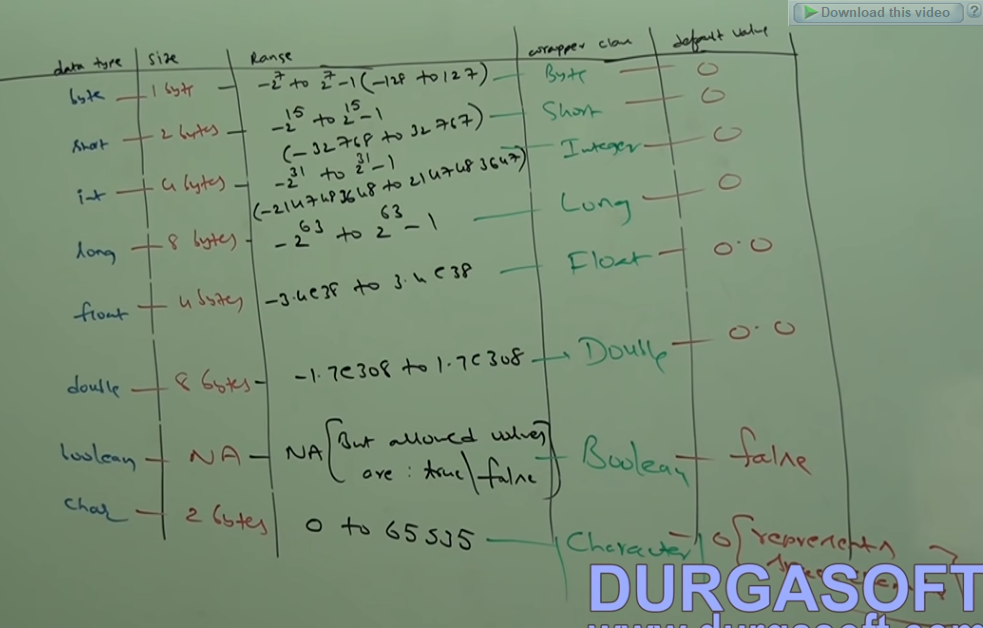 Download this video ?
data type size Range wrapper class default value
byte 1 byte -2^7 to 2^7-1 (-128 to 127) Byte 0
short 2 bytes -2^15 to 2^15-1 Short 0
(-32768 to 32767)
int 4 bytes -2^31 to 2^31-1 Integer 0
(-2147483648 to 2147483647)
long 8 bytes -2^63 to 2^63-1 Long 0
float 4 bytes -3.4e38 to 3.4e38 Float 0.0
double 8 bytes -1.7e308 to 1.7e308 Double 0.0
boolean NA NA [But allowed values Boolean false
are: true/false]
char 2 bytes 0 to 65535 Character 0 [represents
DURGASOFT
www.durgasoft.com